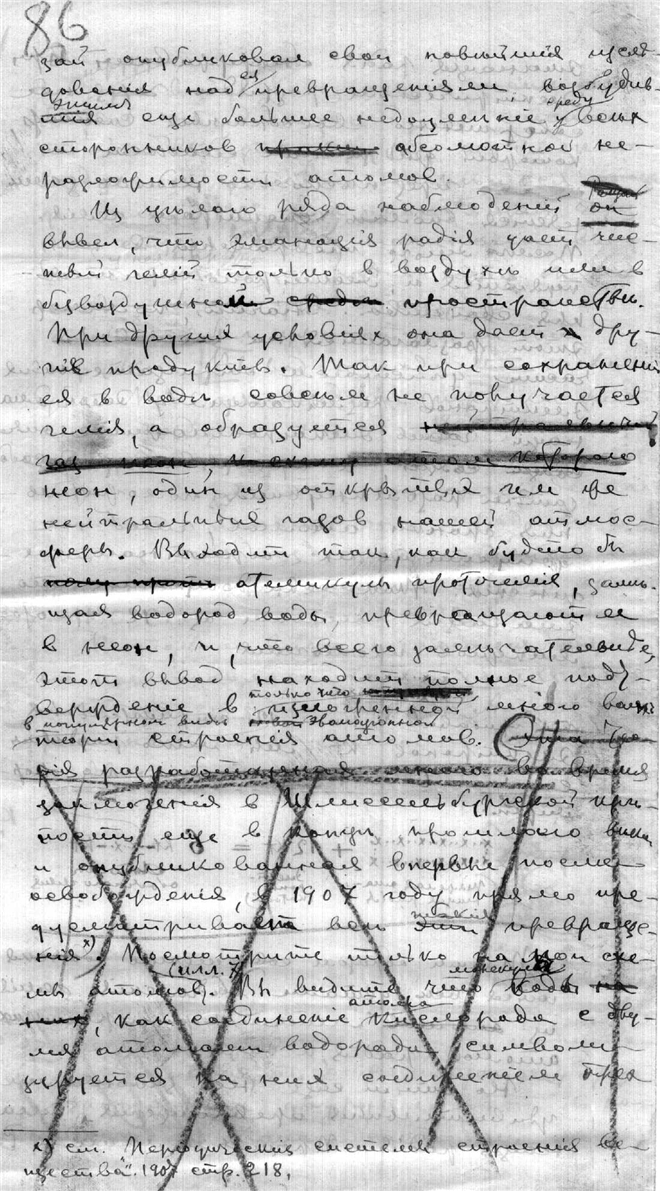 86
зай опубликовал свои новѣйшія изслѣ-
дованія надъ ея превращеніями возбудив-
шія еще большее недоумѣніе среди всѣхъ
сторонниковъ абсолютной не-
разложимости атомовъ.
Изъ цѣлаго ряда наблюденій он
вывел, что эманація радія дает чис-
тый гелій только в воздухѣ или в
безвоздушном пространствѣ.
При других условіях она дает дру-
гіе продукты. Так при сохраненіи
ея в водѣ совсѣм не получается
гелія, а образуется
газ неон, которого
неон, один из открытых им же
нейтральных газов нашей атмос-
феры. Выходит так, как будто бы
атомикулы протогелія,
водород воды, превращаются
в неон, и, что всего замѣчательнѣе,
этот вывод находит полное под-
вержденіе в только что изложенной мною вам
в популярном видѣ эволюціонной
теоріи строенія атомов. Эта тео-
рія разработанная мною во время
заключенія в Шлиссельбургской крѣ-
пости еще в концѣ прошлого вѣка
и опубликованная впервые послѣ
освобожденія, в 1907 году прямо пре-
дусматривает всѣ такія превраще-
нія x). Посмотрите только на мои схе-
мы атомов (илл. ). Вы видите что молекула воды
, как соединеніе атома кислорода с дву-
мя атомами водорода символи-
зируется на них соединеніем трех
x) см. "Періодическія системы строенія ве-
щества". 1907 стр. 218.